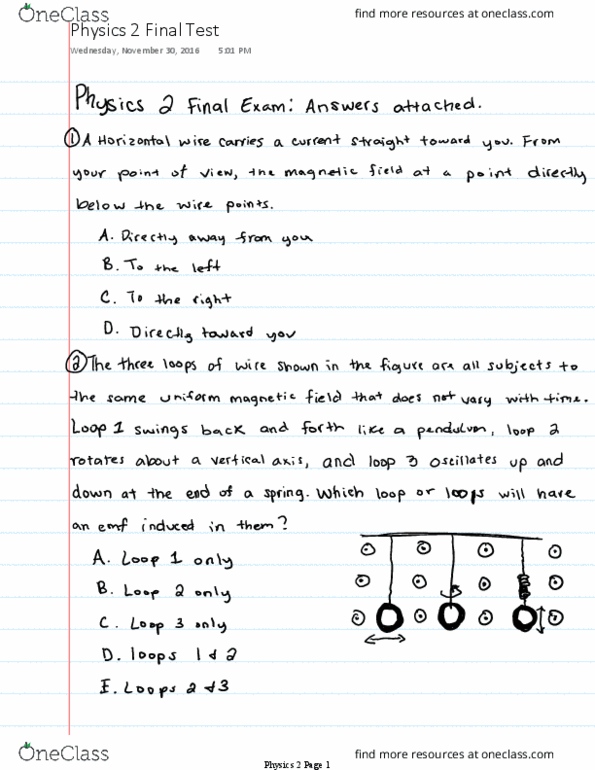 OneClass
find more resources at oneclass.com
Physics 2 Final Test
Wednesday, November 30, 2016 5:01 PM
Physics 2 Final Exam: Answers attached.
① A Horizontal wire carries a current straight toward you. From
your point of view, the magnetic field at a point directly
below the wire points.
A. Directly away from you
B. To the left
C. To the right
D. Directly toward you
② The three loops of wire shown in the figure are all subjects to
the same uniform magnetic field that does not vary with time.
Loop 1 swings back and forth like a pendulum, loop 2
rotates about a vertical axis, and loop 3 oscillates up and
down at the end of a spring. Which loop or loops will have
an emf induced in them?
A. Loop 1 only
B. Loop 2 only
C. Loop 3 only
D. loops 1 & 2
E. Loops 2 & 3
OneClass
find more resources at oneclass.com
Physics 2 Page 1